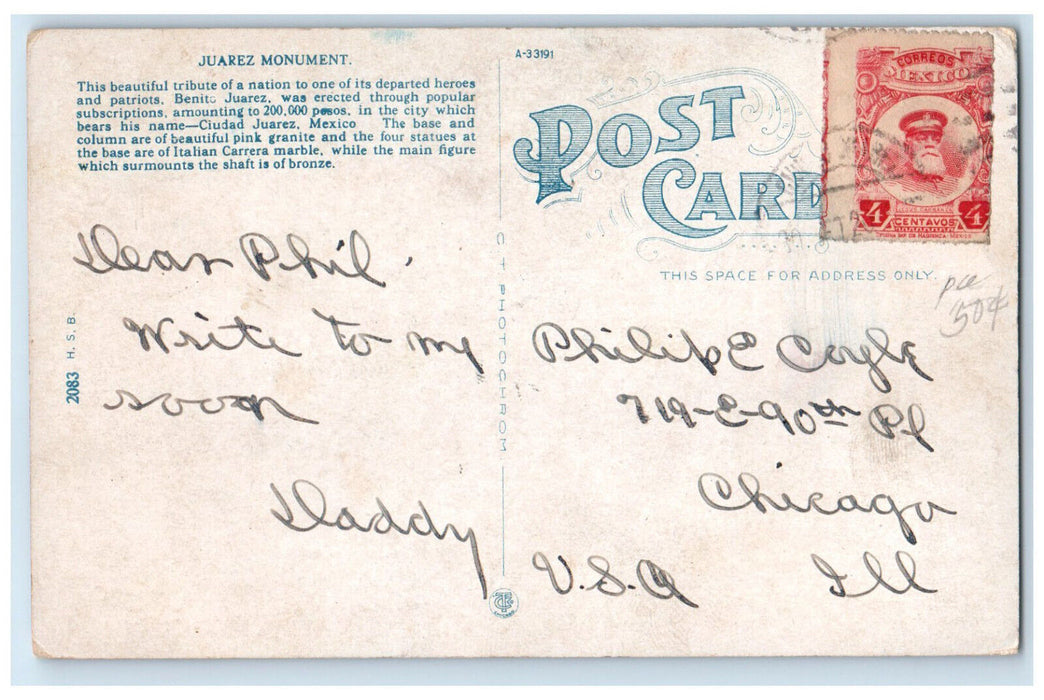 JUAREZ MONUMENT.
This beautiful tribute of a nation to one of its departed heroes
and patriots, Benito Juarez, was erected through popular
subscriptions, amounting to 200,000 pesos, in the city which
bears his name—Ciudad Juarez, Mexico The base and
column are of beautiful pink granite and the four statues at
the base are of Italian Carrera marble, while the main figure
which surmounts the shaft is of bronze.
A-33191
POST
CARD
CORREOS
MEXICO
4
CENTAVOS
4
THIS SPACE FOR ADDRESS ONLY.
50¢
Dear Phil.
Write to my
soon
Daddy
2083 H. S. B.
C T PHOTOCHROM
Philip E Coyle
719-E-90th Pl
Chicago
U.S.A Ill